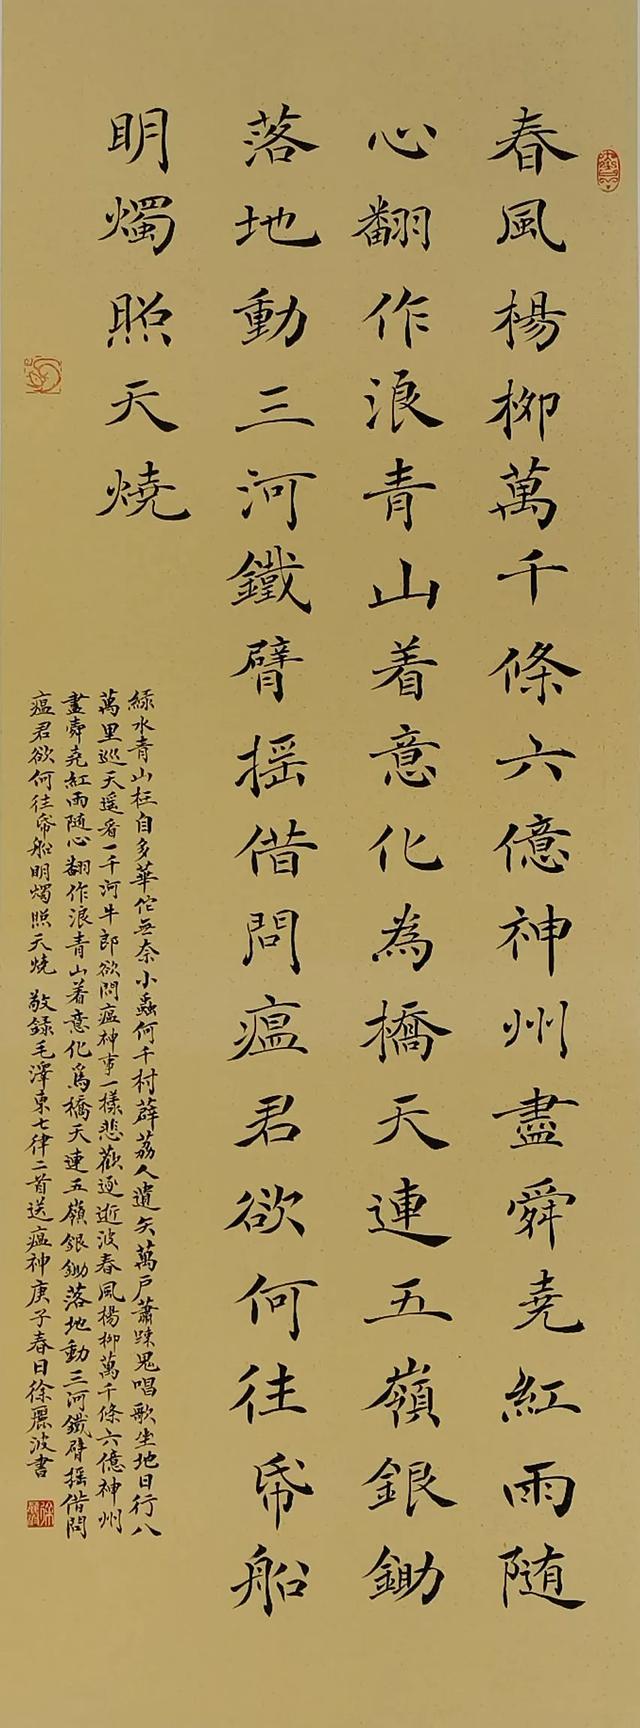 春風楊柳萬千條六億神州盡舜堯紅雨隨
心翻作浪青山着意化為橋天連五嶺銀鋤
落地動三河鐵臂搖借問瘟君欲何往帋船
明燭照天燒
綠水青山枉自多華佗無奈小蟲何千村薜荔人遺矢萬戶蕭疎鬼唱歌坐地日行八
萬里巡天遥看一千河牛郎欲問瘟神事一樣悲歡逐逝波春風楊柳萬千條六億神州
盡舜堯紅雨随心翻作浪青山着意化爲橋天連五嶺銀鋤落地動三河鐵臂搖借問
瘟君欲何往帋船明燭照天燒 敬録毛澤東七律二首送瘟神庚子春日徐麗波書